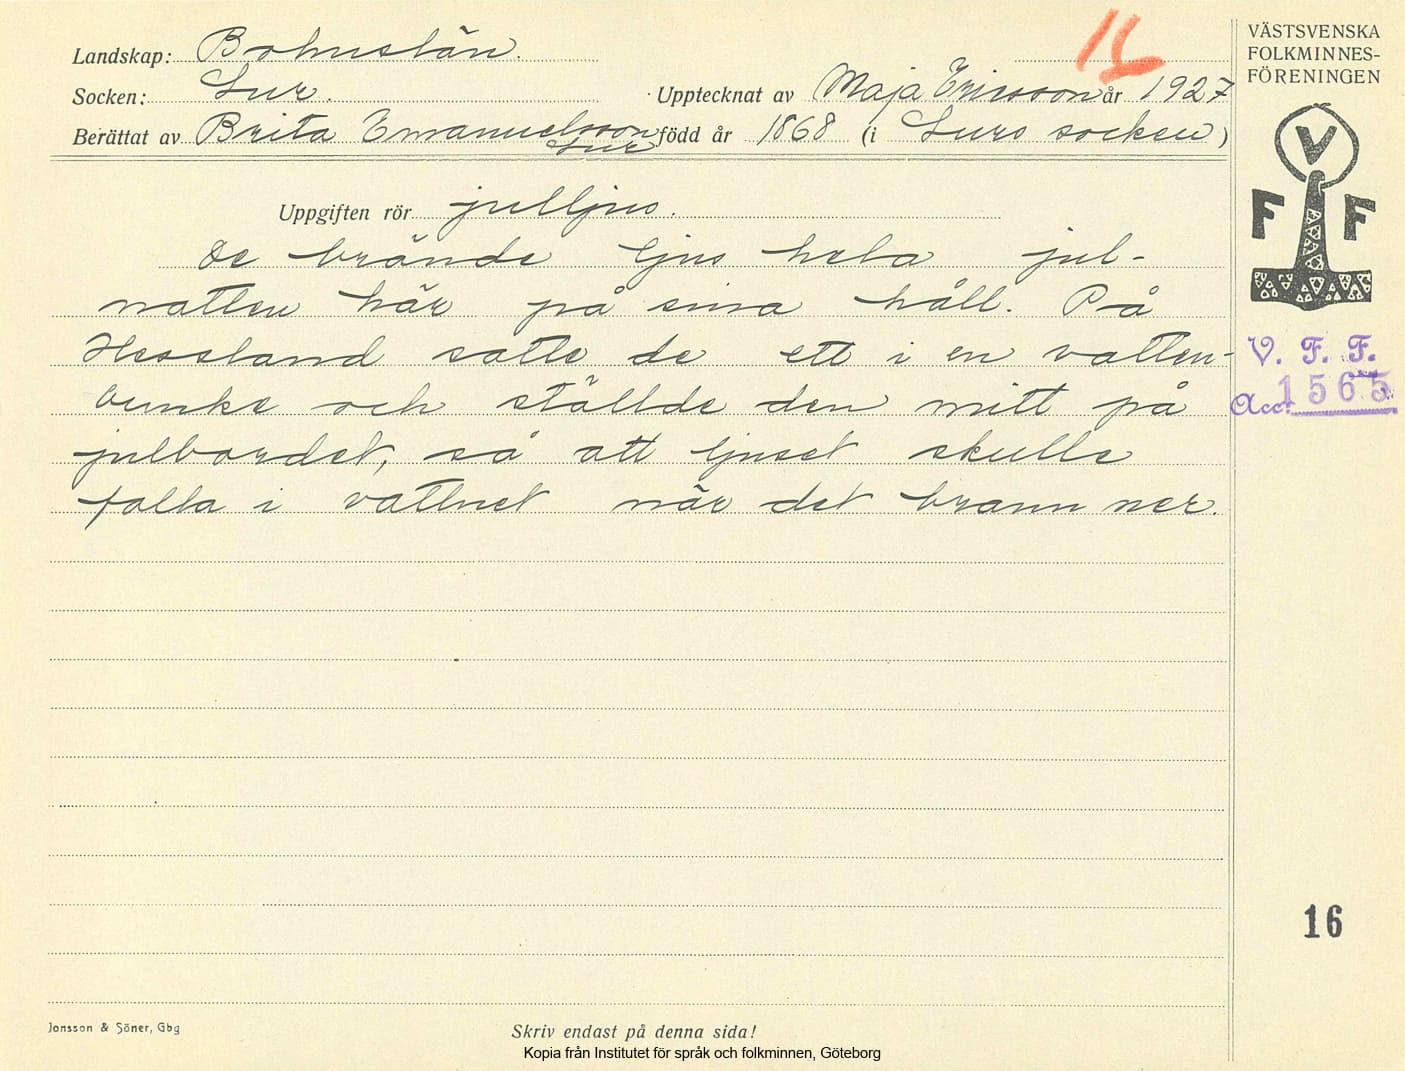 16
Landskap: Bohuslän.
Socken: Lur. Upptecknat av Maja Ericsson år 1927
Berättat av Brita Emanuelsson född år 1868 (i Lurs socken)
Lur
Uppgiften rör julljus.
De brände ljus hela jul-
natten här på sina håll. På
Hessland satte de ett i en vatten-
bunke och ställde den mitt på
julbordet, så att ljuset skulle
falla i vattnet när det brann ner.
VÄSTSVENSKA
FOLKMINNES-
FÖRENINGEN
V
F F
V. F. F.
Acc. 1565
16
Jonsson & Söner, Gbg
Skriv endast på denna sida!
Kopia från Institutet för språk och folkminnen, Göteborg